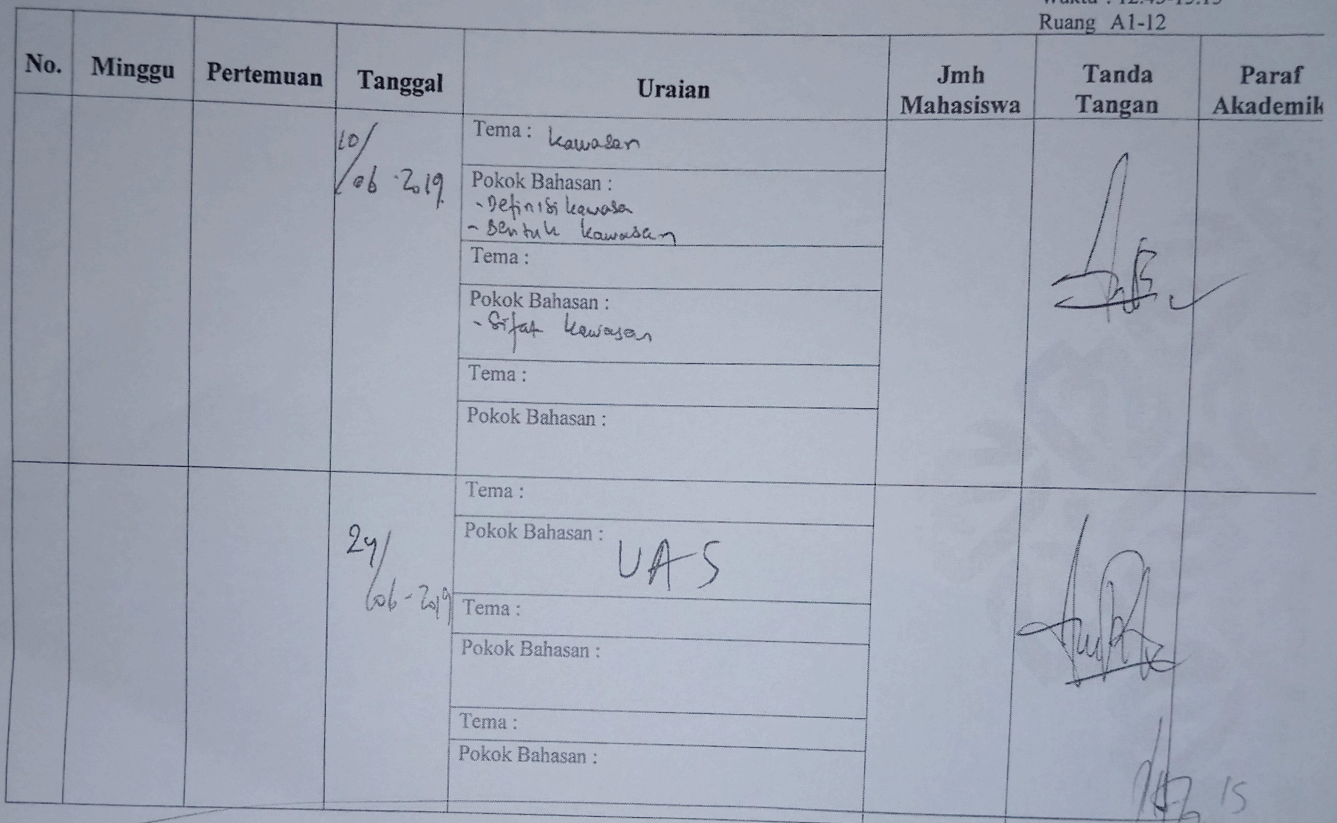 Ruang A1-12
No. Minggu Pertemuan Tanggal Uraian Jmh Mahasiswa Tanda Tangan Paraf Akademik
10/06-2019
Tema : Kawasan
Pokok Bahasan :
- Definisi kawasa
- Bentuk kawasan
Tema :
Pokok Bahasan :
- Sifat kawasan
Tema :
Pokok Bahasan :
24/06-2019
Tema :
Pokok Bahasan : UAS
Tema :
Pokok Bahasan :
Tema :
Pokok Bahasan :
15